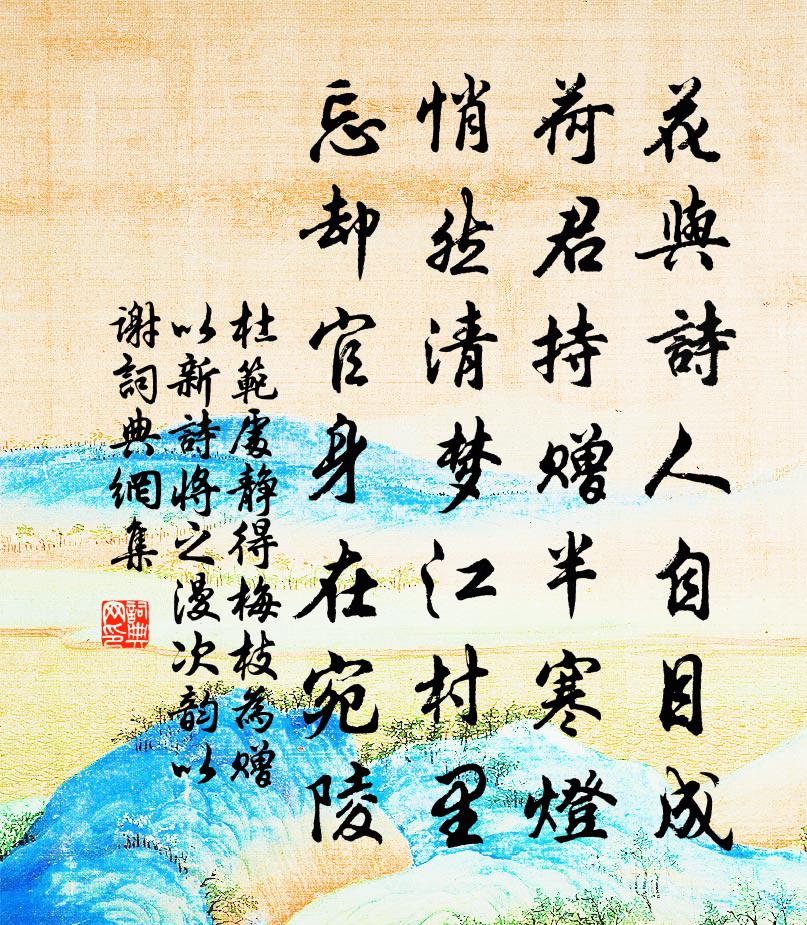 花與詩人自目成
荷君持赠半寒燈
悄然清梦江村里
忘却官身在宛陵
杜範處静得梅枝為赠
以新詩將之漫次韵以
謝詞典網集
詞典
网印